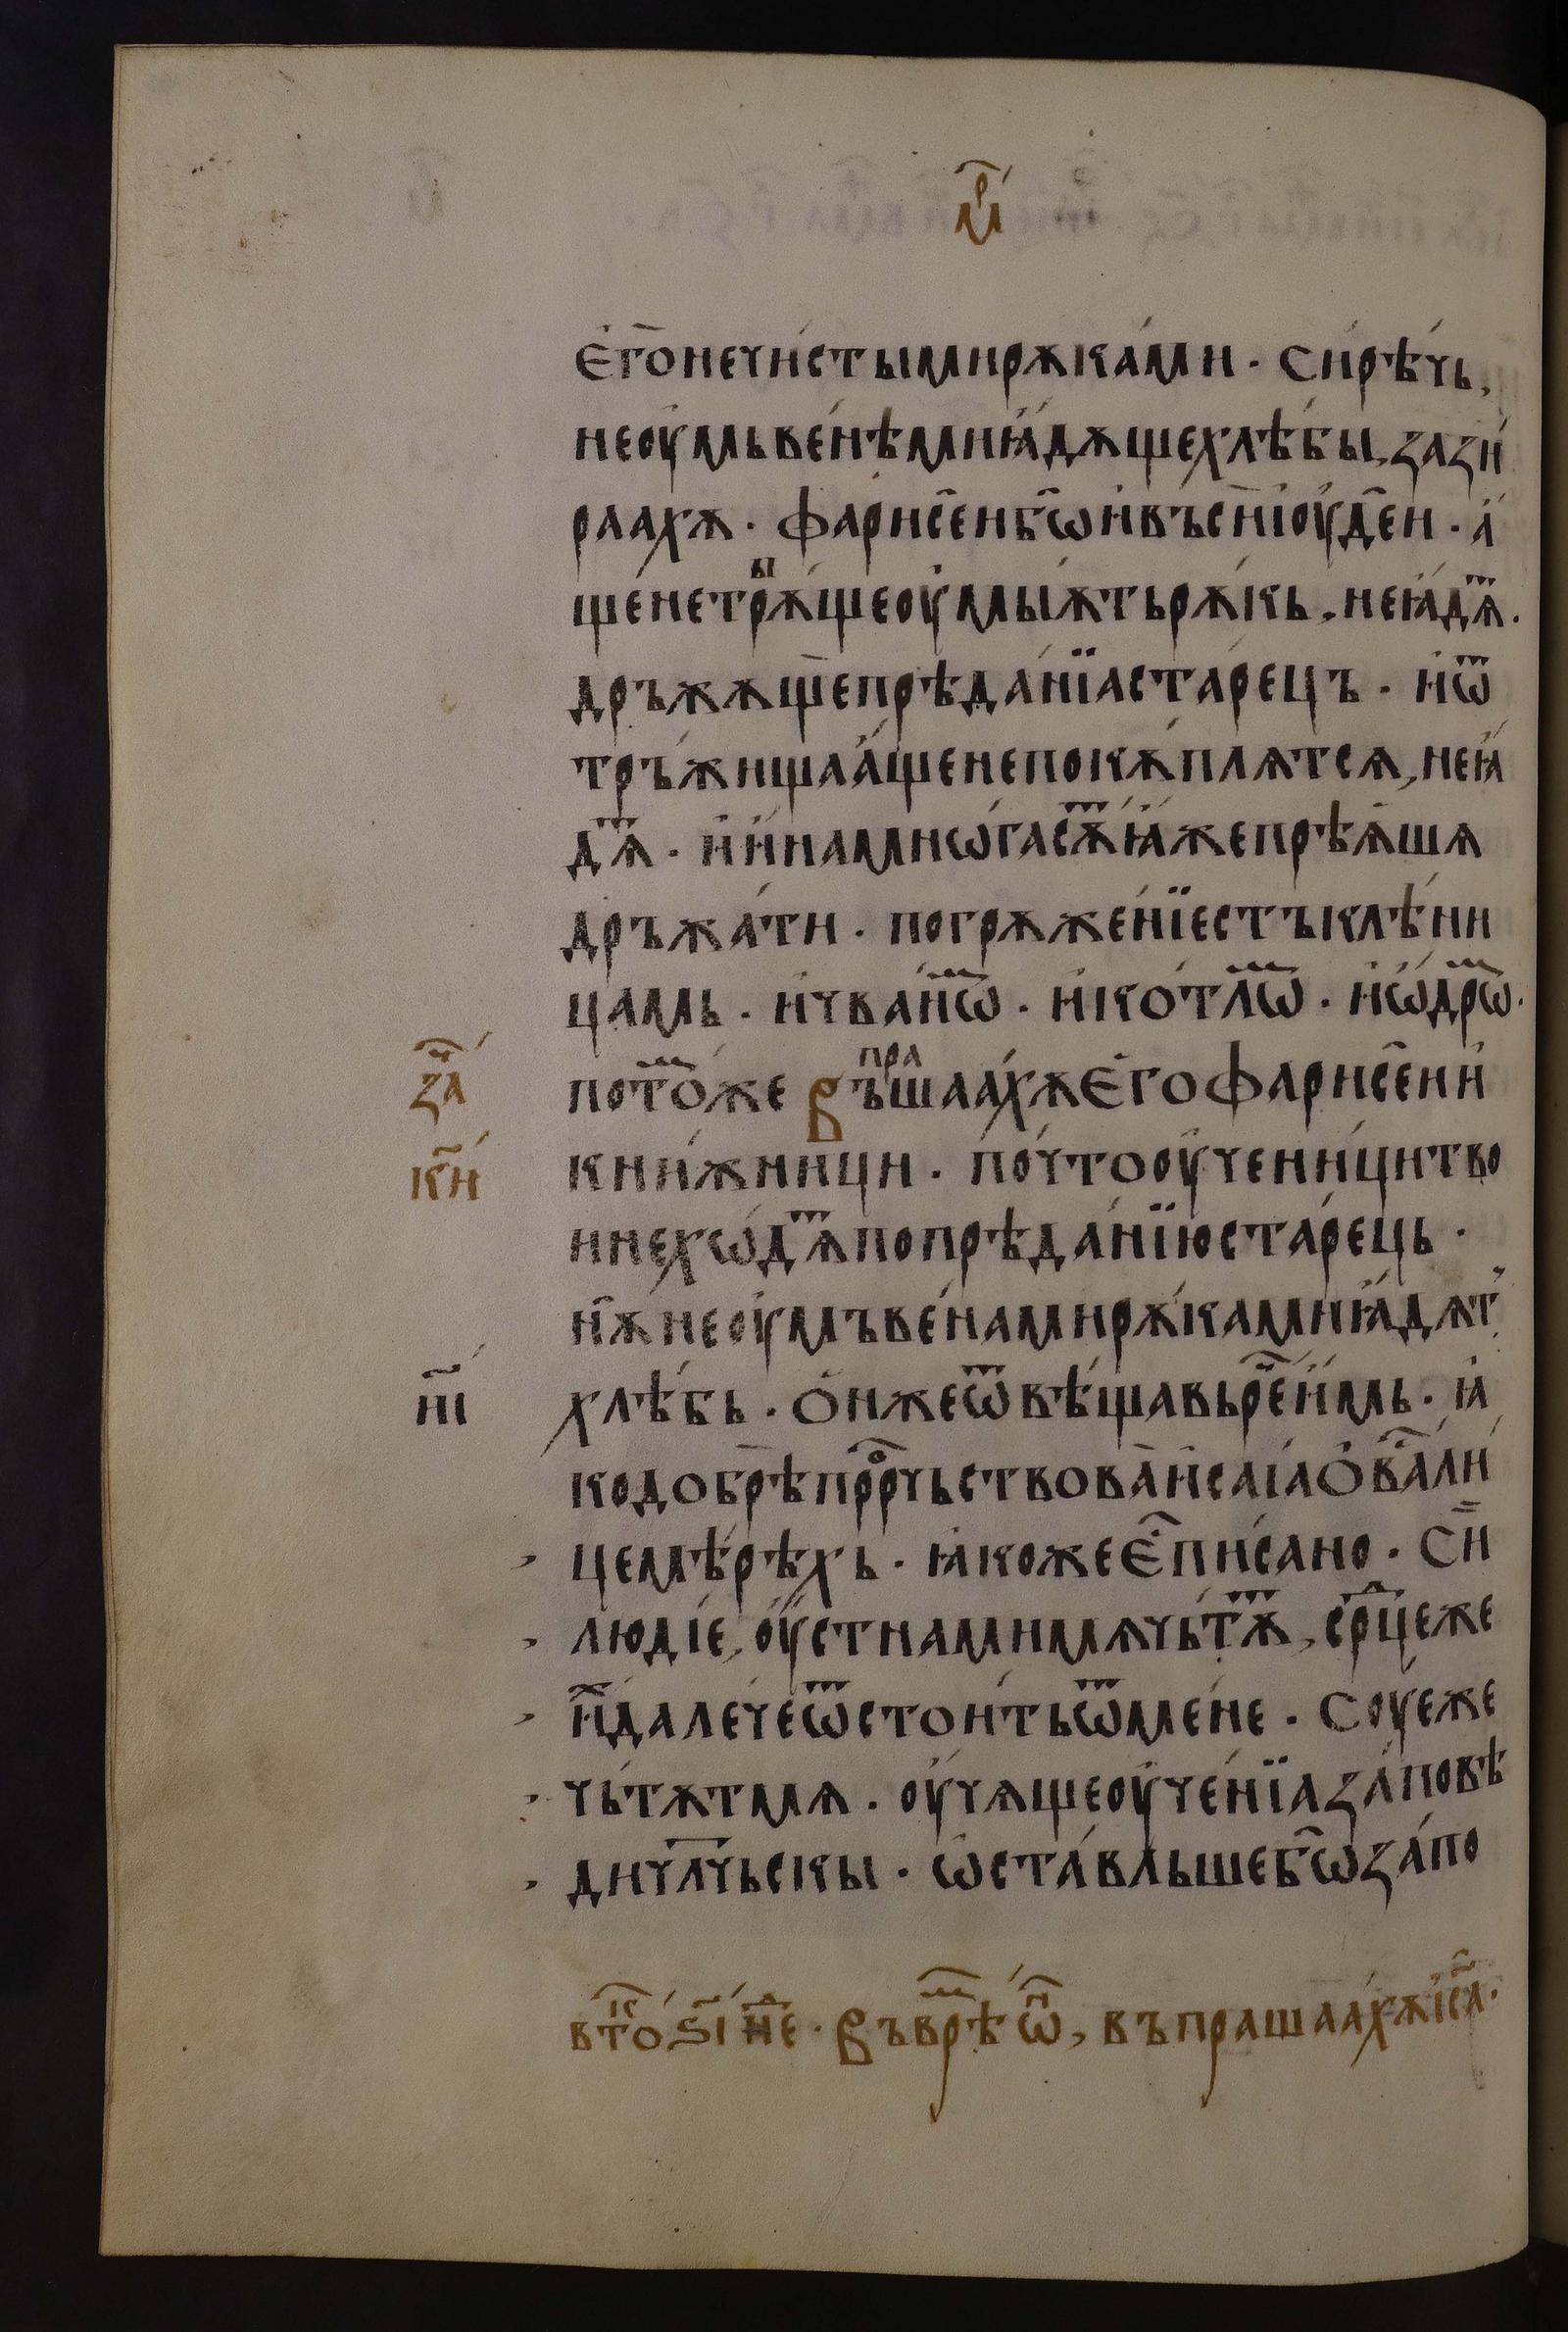 мр҃
Є҆го̀нечи́стымирѫка́ми · Си́рѣчь,
неоу҆мьве́нѣмиꙗ҆́дѫщехлѣ́бы, зази
раахѫ · фарисе҄ибѡ҄и҆въсѝі҆оуде҄и · а҆́
ще́нетрыѫ́щеоу҆мыѫ́тьрѫ́кь, неꙗ҆́дѧⷮ ·
дръжѧщепрѣда́нїастаре́цъ · и҆ѿ
тръ́жищаа҆́щенепокѫ́плѧтсѧ, неꙗ҆
дѧⷮ · и҆и҆́намнѡ́гасѫⷮꙗ҆́жепрѣѧ҆́шѧ
дръжа́ти · погрѫже́нїестъклѣ́ни
цамь · и҆чва́нѡⷨ · и҆ко́тлѡⷨ · и҆ѡ҆дрѡⷨ ·
заⷱ҇ потоⷨ́же въпрашааа́хѫЄ҆гофарисе҄ии҆
кн҃и кни́жници · по́чтооу҆чени́цитво
инехѡ́дѧⷮпопрѣда́нїюстаре́ць ·
нѫ҄неоу҆мъве́намирѫ́камиꙗ҆́дѧт
н҃і хлѣ́бь · Ѻ҆нжеѿвѣ́щавьреⷱ҇и҆́мь · ꙗ҆
кодобрѣпрⷪ҇рчьствова̀и҆саі́аѺ҆ваⷭ҇ли
цемѣ́рѣхь · ꙗ҆кожеЄ҆ⷭ҇пи́сано · Сѝи
лю́діе, оу҆стнамимѧчьтѫⷮ, срⷣцеже
иⷯ҇дале́чеѿстои́тьѿмене · Соу́еже
чьтѫтмѧ · оу҆чѧщеоу҆че́нїаза́повѣ
дичл҃чьскы · ѡ҆ста́вльшебѡ҄за́по
втоⷦ҇ ѕ҃і неⷣ · Въврѣⷨ ѡⷩ҇, въпрашаа́хѫі҆с҃а ·